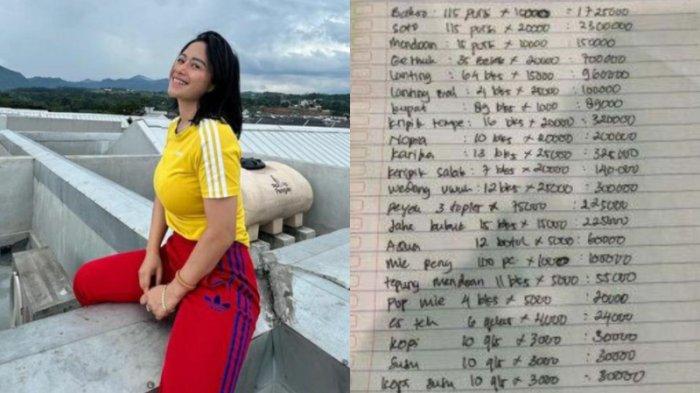 Bakso : 115 porsi x 15000 : 1725000
Soto 115 porsi x 20000 : 2300000
Mendoan : 15 porsi x 10000 150000
Gethuk : 35 x 20000 : 700000
Lanting : 64 bks x 15000 : 960000
Lanting : 4 bks x 25000 : 100000
kupat : 89 bks x 1000 : 89000
kripik tempe : 16 bks x 20000 : 320000
Nopia : 10 bks x 20000 : 200000
karika : 13 bks x 25000 : 325000
keripik salak : 7 bks x 20000 : 140000
wedang uwuh : 12 bks x 25000 : 300000
peyek 3 toples x 75000 : 225000
Jahe bubuk 15 bks x 15000 : 225000
Aqua 12 botol x 5000 : 60000
mie 100 pc x 1000 : 100000
tepung mendoan 11 bks x 5000 : 55000
pop mie 4 bks x 5000 : 20000
es teh 6 gelas x 4000 : 24000
kopi 10 gls x 3000 : 30000
susu 10 gls x 3000 : 30000
kopi susu 10 gls x 3000 : 30000
adidas